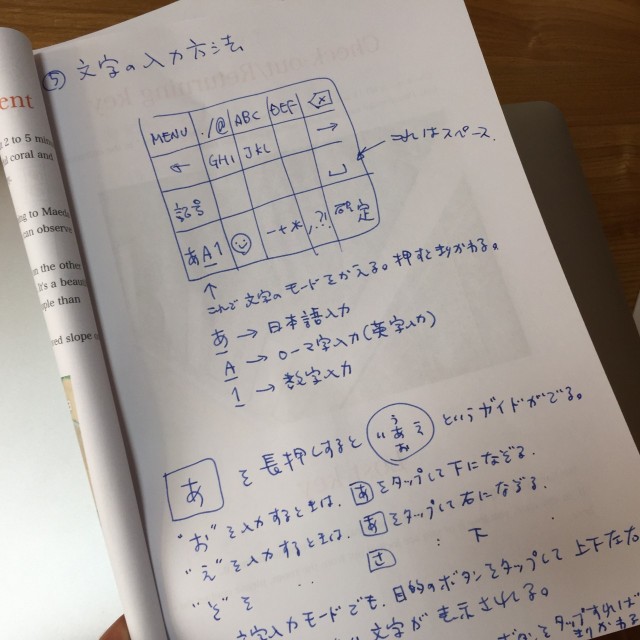 ent
2 to 5 minu
d coral and
ng to Maeda
can observe
n the other
It's a beau
ple than
ved slope
⑤ 文字の入力方法
MENU ./@ ABC DEF ⌫
← GHI JKL →
記号 ␣
これはスペース.
あA1 ☺ -+* ,.?! 確定
↑
これで文字のモードをかえる。押すときりかわる。
あ → 日本語入力
A → ローマ字入力(英字入力)
1 → 数字入力
あ を長押しすると う いあえ お というガイドがでる。
"お"を入力するときは、あをタップして下になぞる.
"え"を入力するときは、あをタップして右になぞる.
"そ"を 〃 さ : 下 :
文字入力モードでも、目的のボタンをタップして上下左右
文字が 表示される。